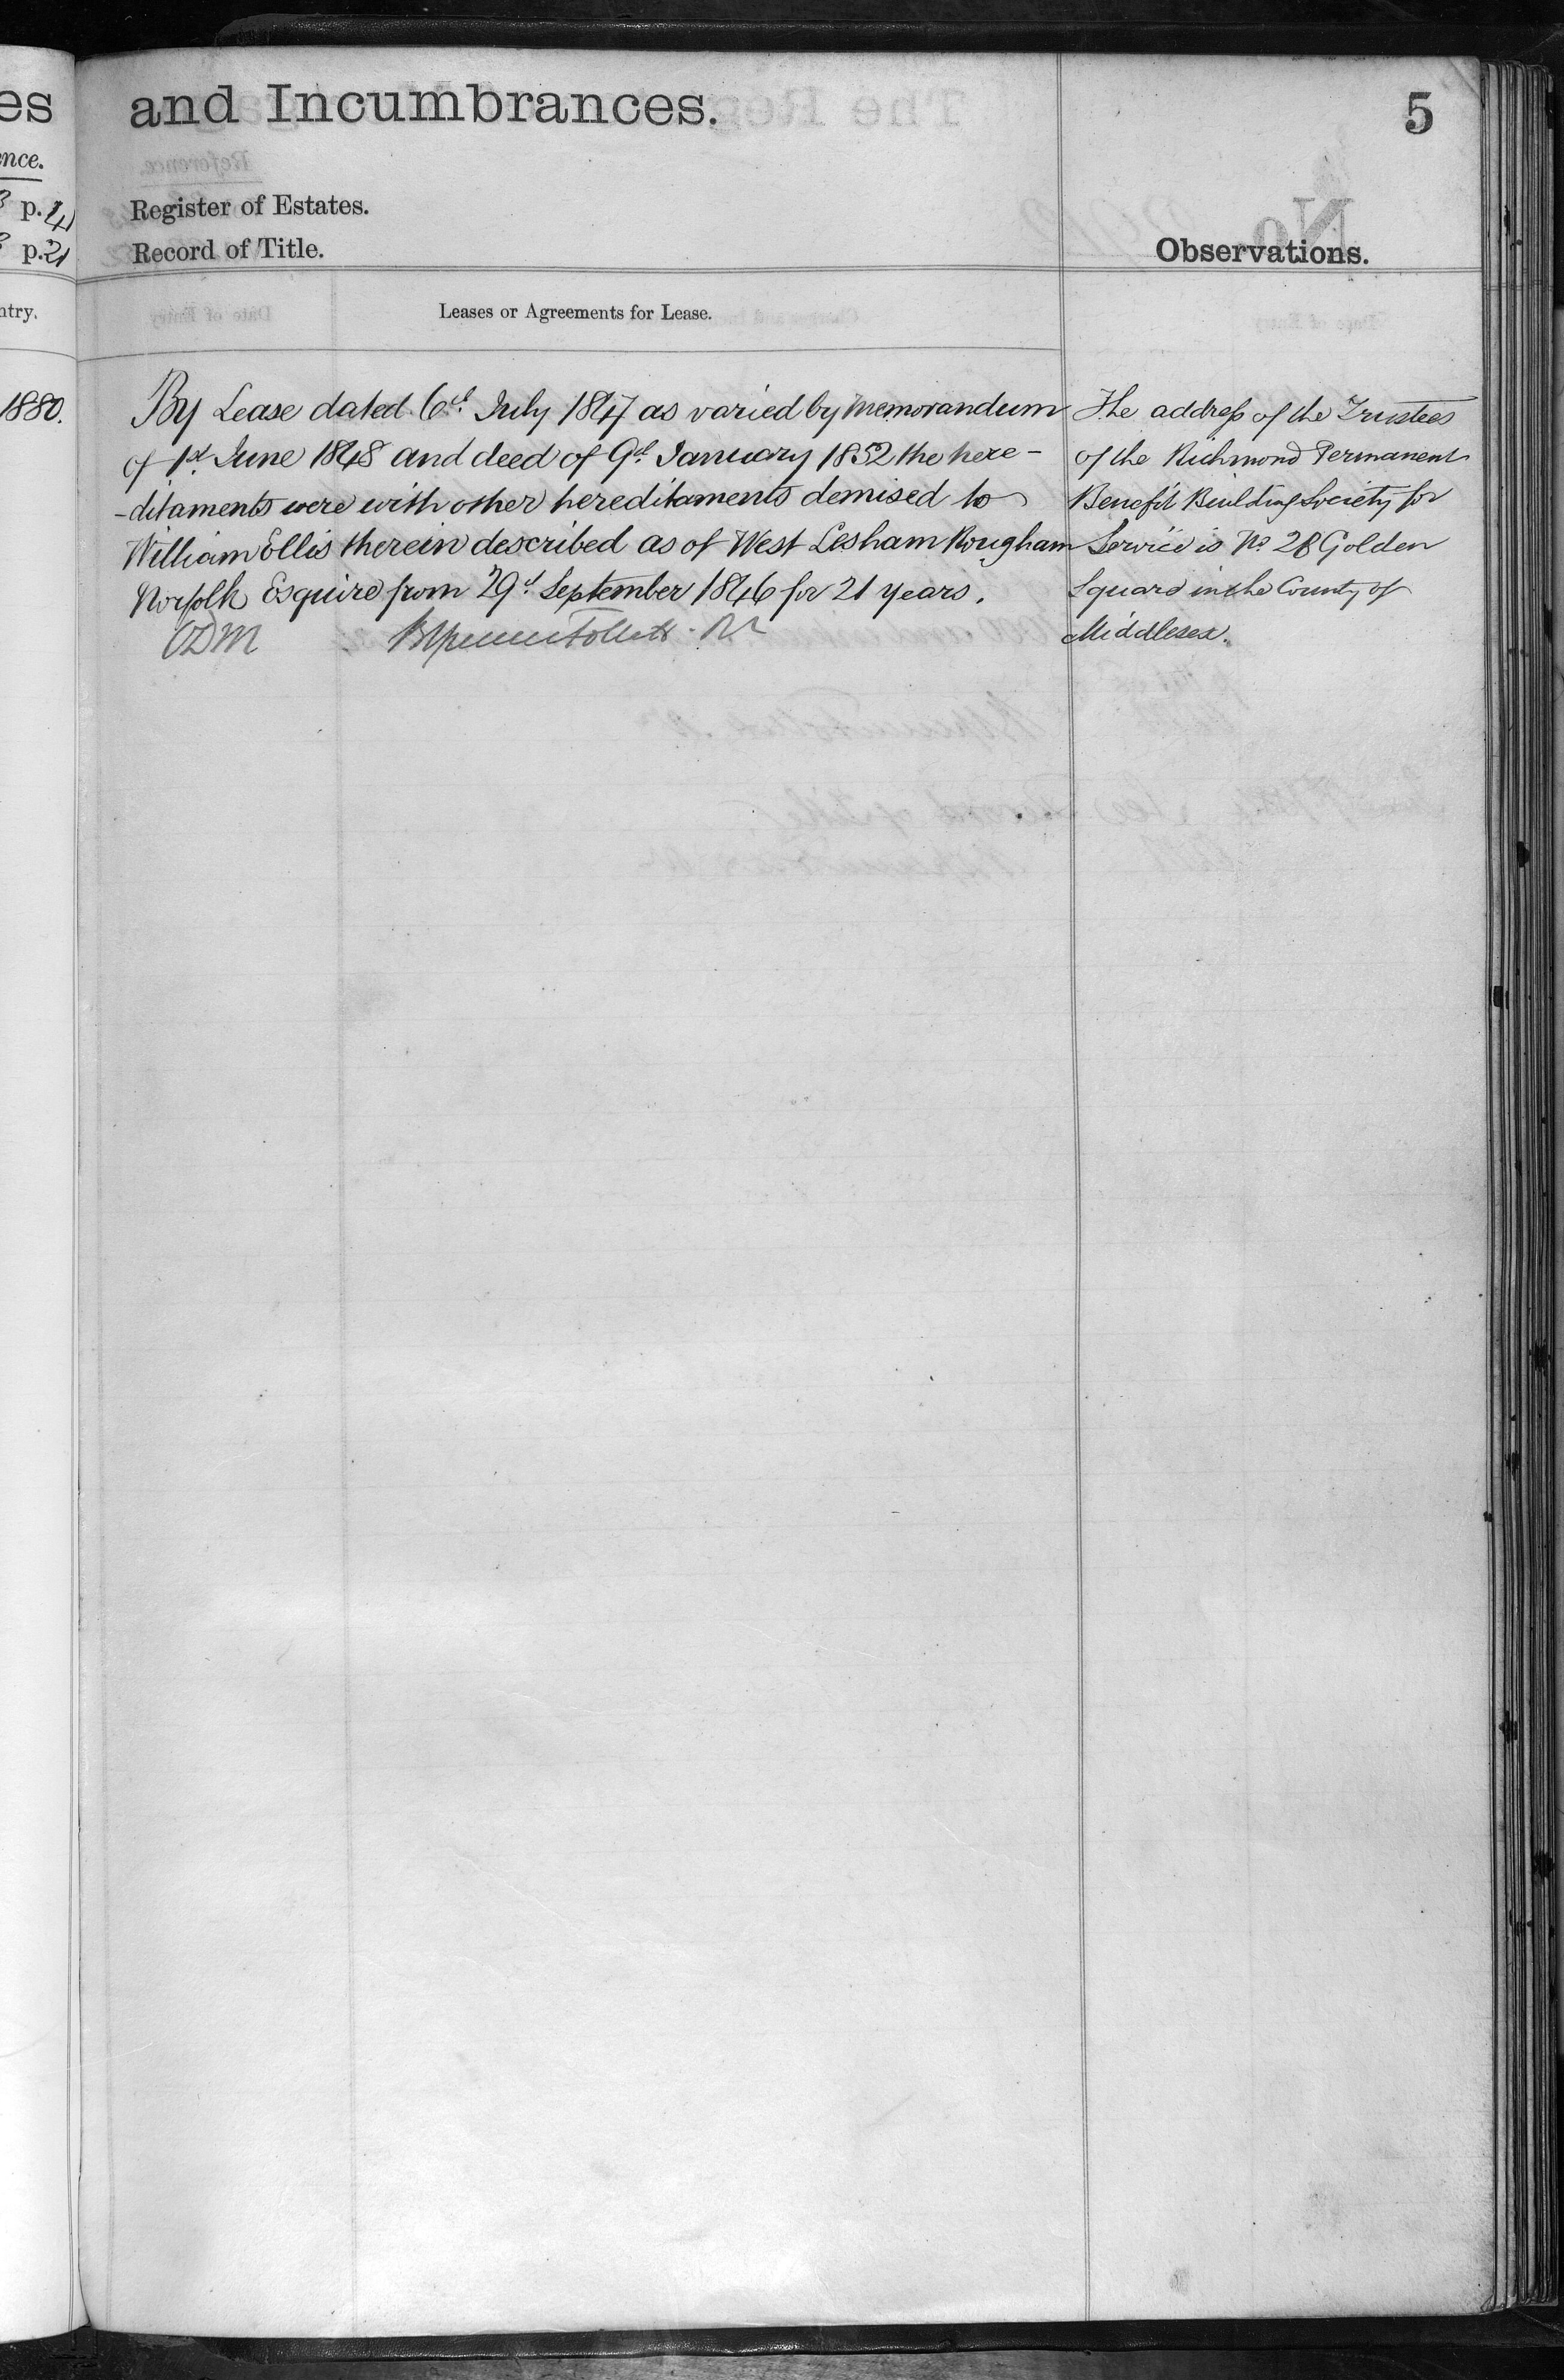 es
and Incumbrances.
5
nce.
p. 4
p. 21
Register of Estates.
Record of Title.
Observations.
ntry.
Leases or Agreements for Lease.
1880.
By Lease dated 6th July 1847 as varied by memorandum
of 1st June 1848 and deed of 9th January 1852 the here-
-ditaments were with other hereditaments demised to
William Ellis therein described as of West Lesham Rougham
Norfolk Esquire from 29th September 1846 for 21 years.
The address of the Trustees
of the Richmond Permanent
Benefit Building Society for
Service is No 28 Golden
Square in the County of
Middlesex.